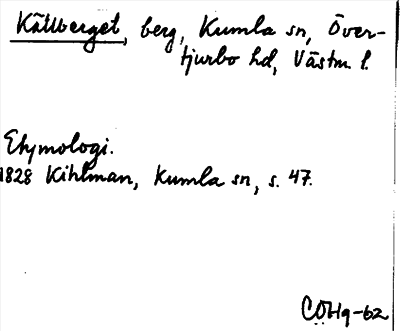 Källberget, berg, Kumla sn, Över-
tjurbo hd, Västm. l.
Etymologi.
1828 Kihlman, Kumla sn, s. 47.
CÖHg-62